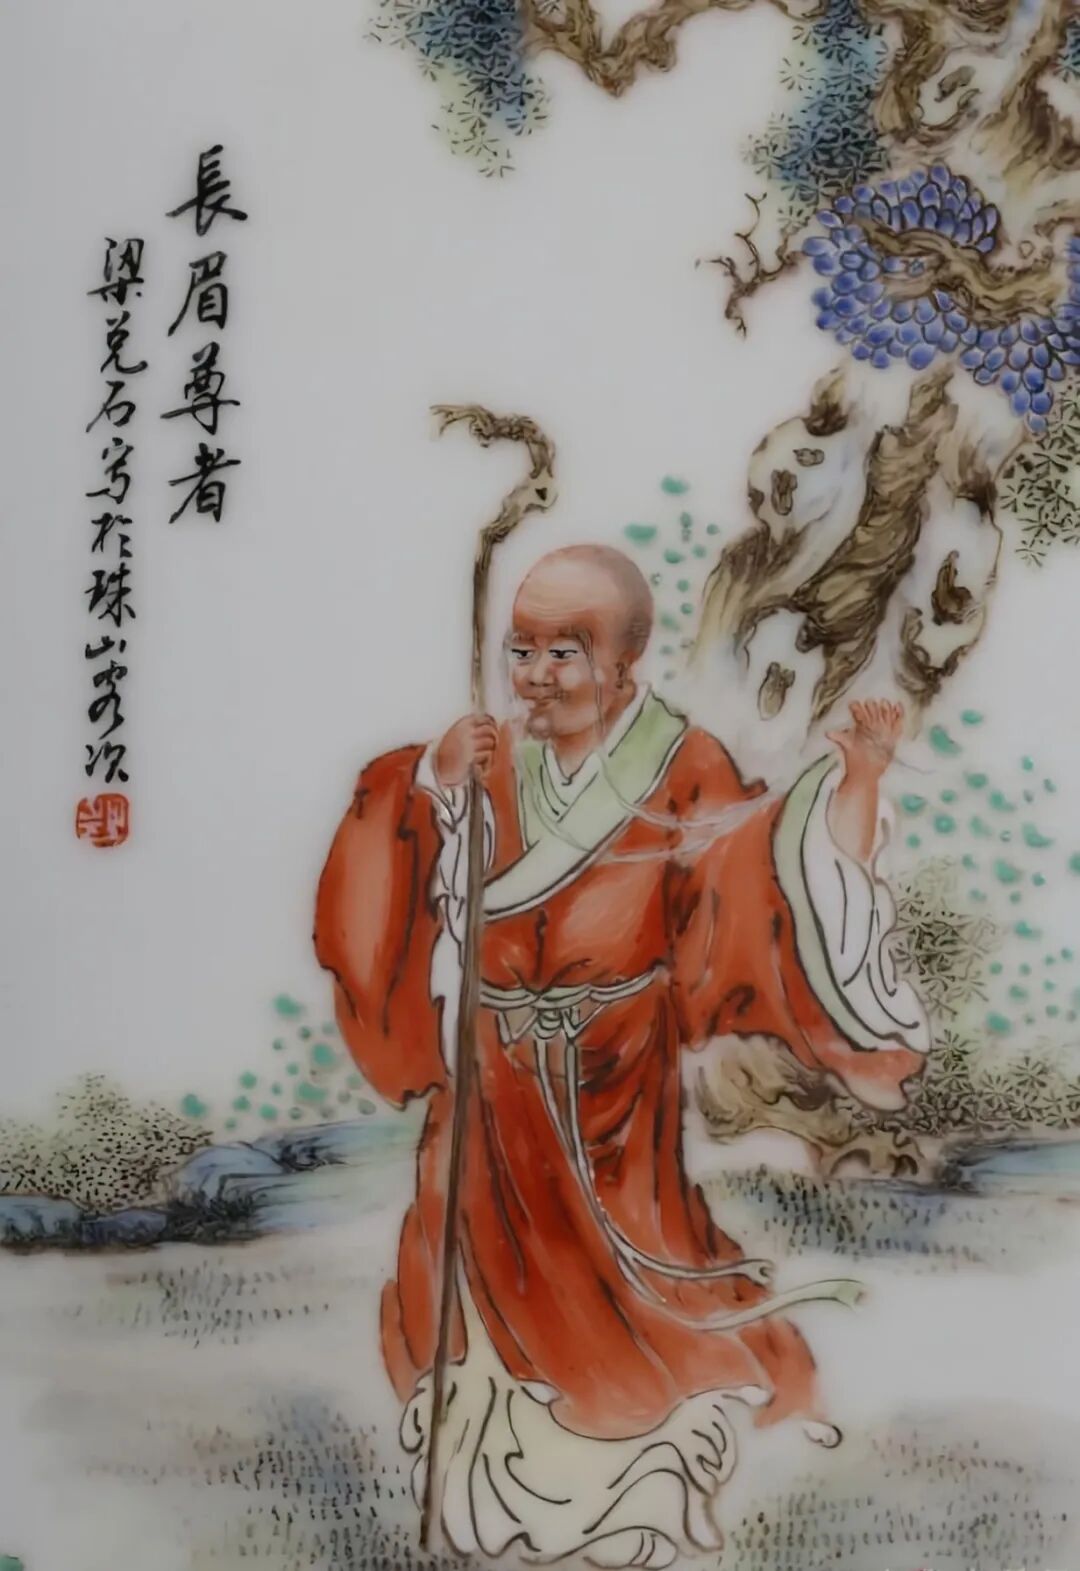 長眉尊者
梁兑石写於珠山客次